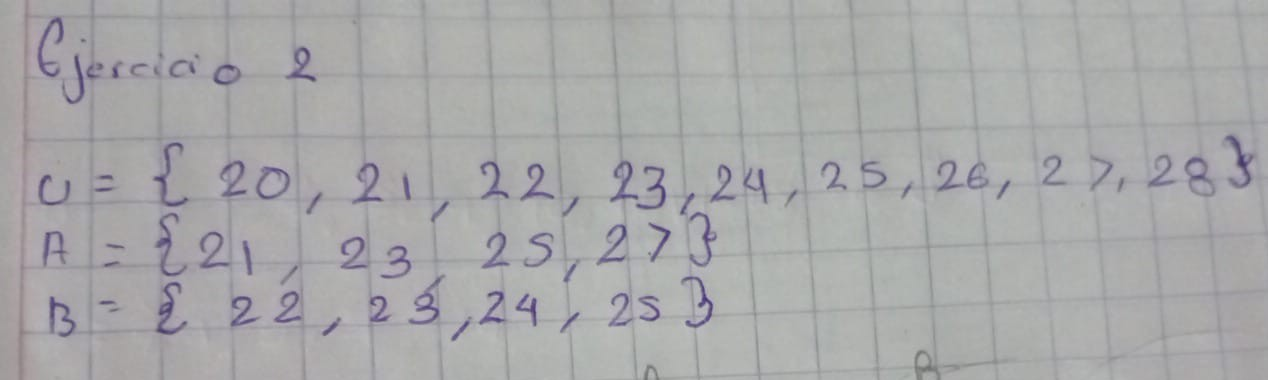 Ejercicio 2
U = { 20, 21, 22, 23, 24, 25, 26, 27, 28}
A = {21, 23, 25, 27}
B = { 22, 23, 24, 25}
B